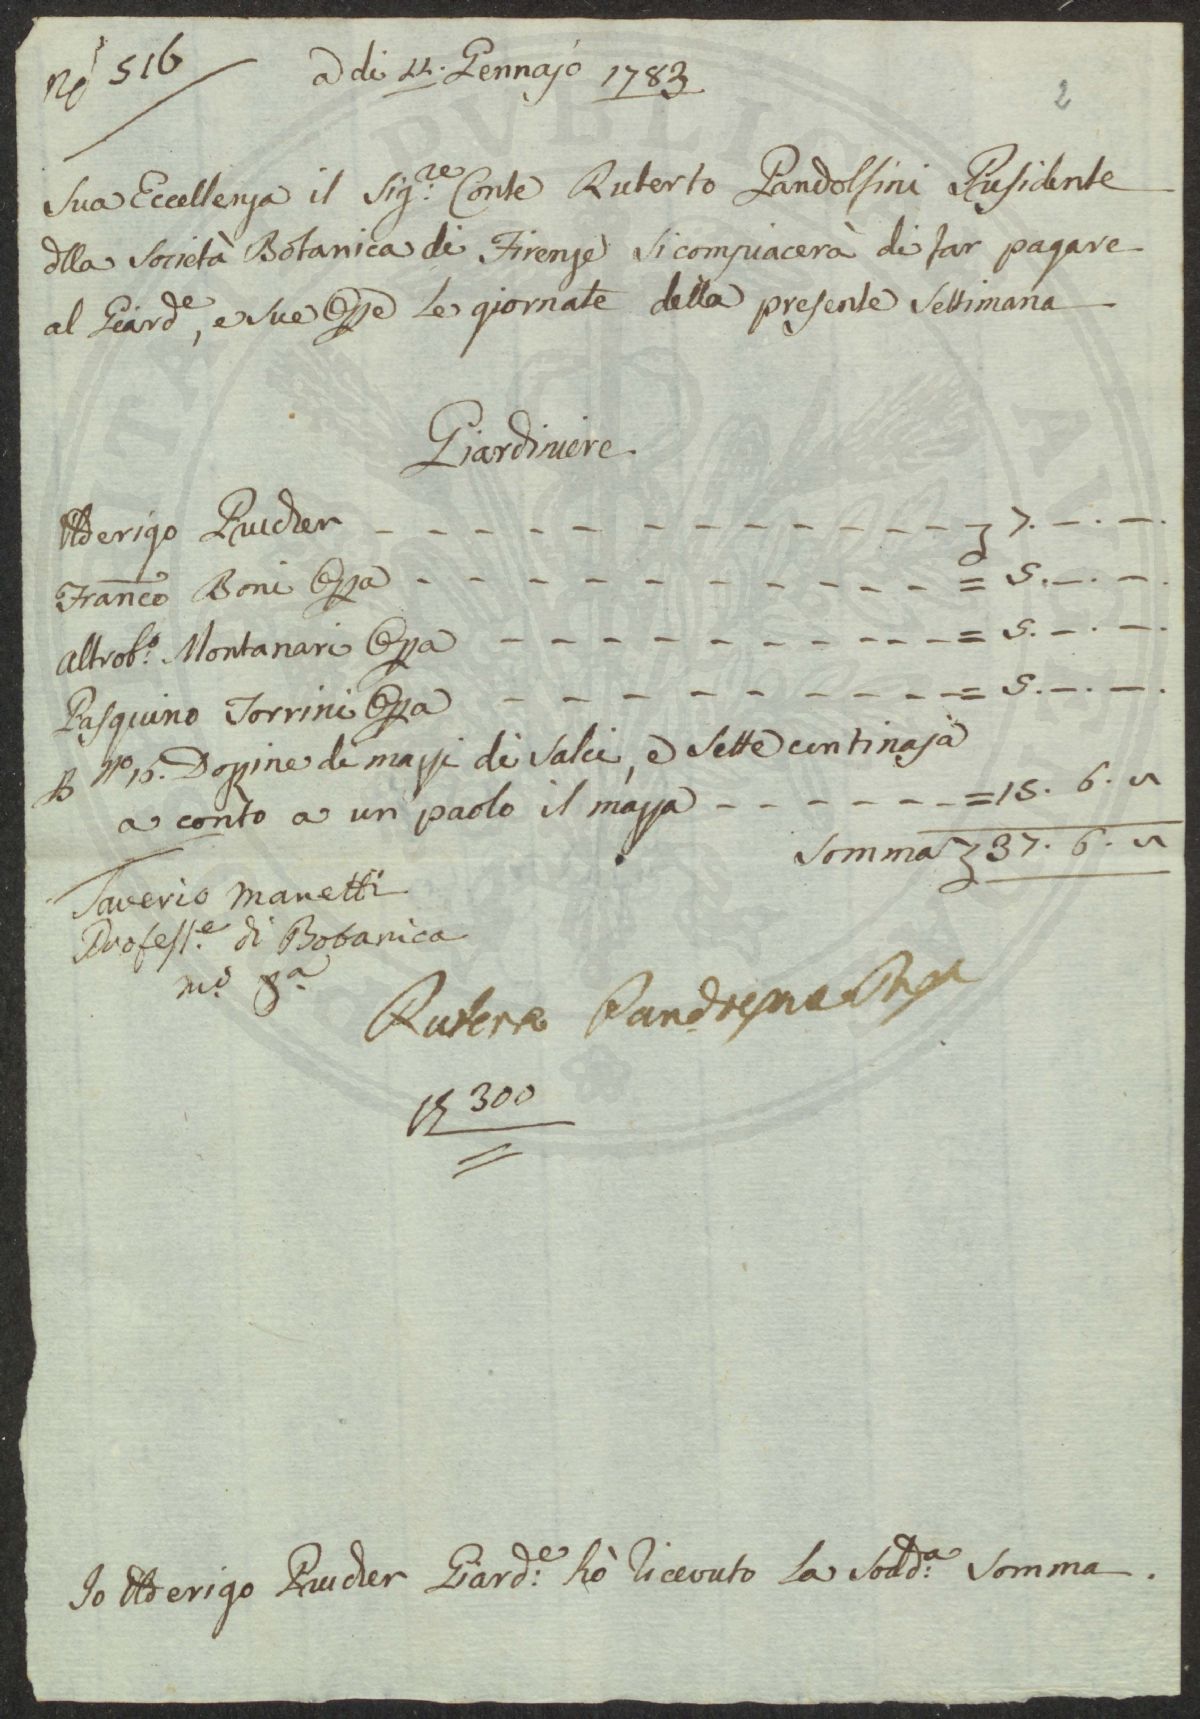 N.º 516
a di 11. Gennajo 1783
2
Sua Eccellenza il Sig.re Conte Ruberto Pandolfini Presidente
della Società Botanica di Firenze si compiacerà di far pagare
al Giard.e, e sue Opre le giornate della presente Settimana
Giardiniere
Arrigo Brucker - - - - - - - - - - £ 7. —. —.
Franco Boni Opra - - - - - - - - - - = 5. —. —.
Altrob.o Montanari Opra - - - - - - - - = 5. —. —.
Pasquino Torrini Opra - - - - - - - - = 5. —. —.
P N.o 15. Dozzine di mazzi di Salci, e Sette centinaja
a conto a un paolo il mazza - - - - - - = 15. 6. 8
Somma £ 37. 6. 8
Saverio Manetti
Profess.e di Botanica
m.o p.a
Ruberto
300
Io Arrigo Brucker Giard.e hò ricevuto la Sodd.a Somma.